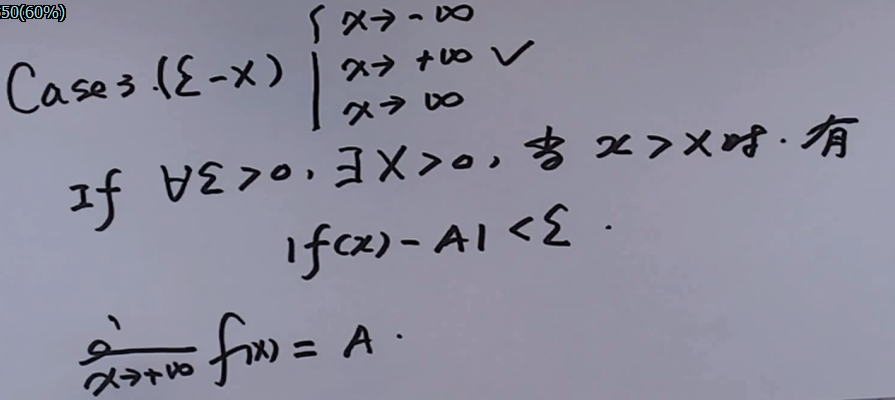 50(60%)
{ x→-∞
Case 3.(ε-X) x→+∞ ✓
x→∞
If ∀ε>0, ∃X>0, 当 x>X时. 有
|f(x)-A|<ε.
x→+∞ f(x)=A.